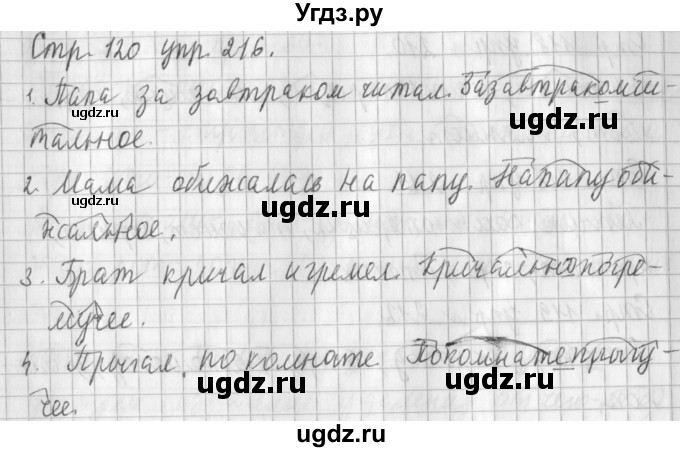 Угдз.ру
Стр. 120 упр. 216.
1. Папа за завтраком читал. Зазавтракомчи-
тальное.
2. Мама обижалась на папу. Напапуоби-
жсальное.
3. Брат кричал и гремел. Кричальнопогре-
мучее.
4. Прыгал по комнате Покомнатепрыгу-
чее.
ugdz.ru
ugdz.ru
ugdz.ru
ugdz.ru
ugdz.ru
ugdz.ru
ugdz.ru
ugdz.ru
ugdz.ru